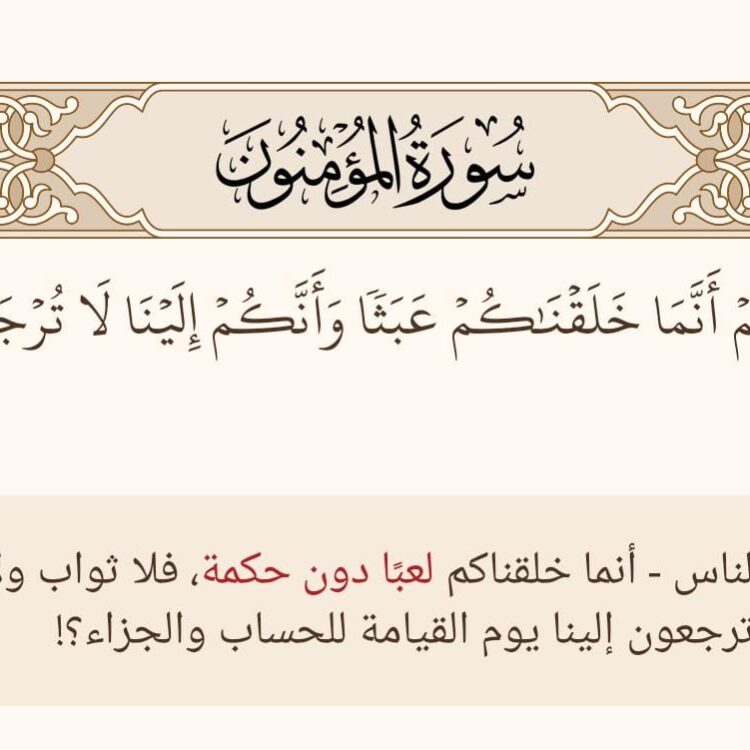 سُورَةُ المُؤۡمِنُونَ
أَنَّمَا خَلَقۡنَٰكُمۡ عَبَثٗا وَأَنَّكُمۡ إِلَيۡنَا لَا
لناس - أنما خلقناكم لعبًا دون حكمة، فلا ثواب ولا
ترجعون إلينا يوم القيامة للحساب والجزاء؟!